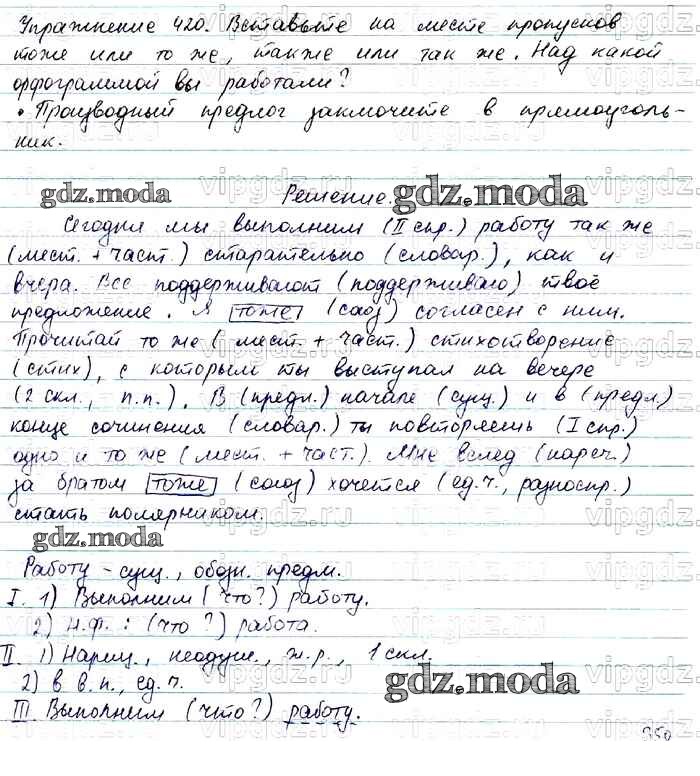 Упражнение 420. Вставьте на месте пропусков
тоже или то же, также или так же. Над какой
орфограммой вы работали?
• Производный предлог заключите в прямоуголь-
ник.
gdz.moda Решение. gdz.moda
Сегодня мы выполним (II спр.) работу так же
(мест. + част.) старательно (словар.), как и
вчера. Все поддерживают (поддерживаю) твоё
предложение. Я тоже (союз) согласен с ним.
Прочитай то же (мест. + част.) стихотворение
(стих), с которым ты выступал на вечере
(2 скл., п.п.). В (предл.) начале (сущ.) и в (предл.)
конце сочинения (словар.) ты повторяешь (I спр.)
одно и то же (мест. + част.). Мне вслед (нареч.)
за братом тоже (союз) хочется (ед.ч., разноспр.)
стать полярником.
gdz.moda
Работу - сущ., обозн. предм.
I. 1) Выполним (что?) работу.
2) Н.ф.: (что?) работа.
II. 1) Нариц., неодуш., ж.р., 1 скл.
2) в В.п., ед.ч.
gdz.moda
III Выполним (что?) работу.